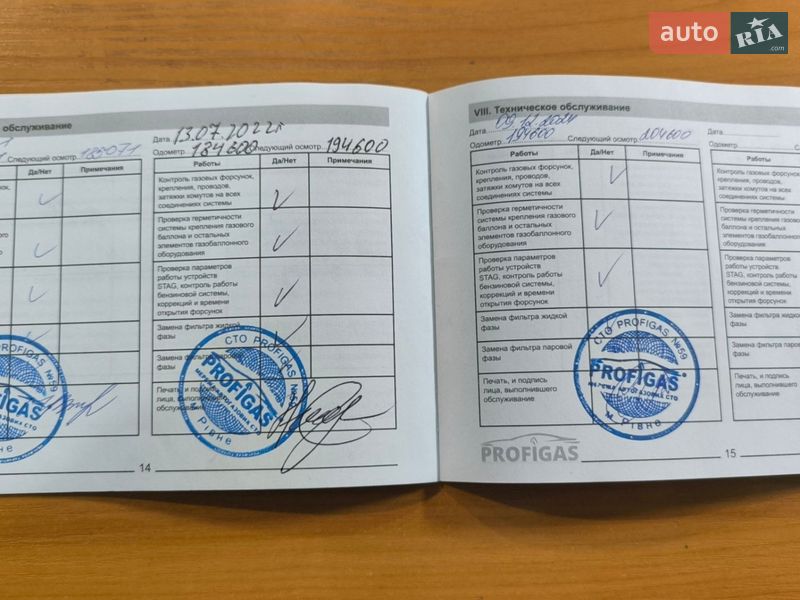 auto RIA .com
обслуживание
Следующий осмотр 185071
Да/Нет Примечания
Дата 13.07.2022г
Одометр 184600 Следующий осмотр 194600
Работы Да/Нет Примечания
Контроль газовых форсунок,
крепления, проводов,
затяжки хомутов на всех
соединениях системы
Проверка герметичности
системы крепления газового
баллона и остальных
элементов газобаллонного
оборудования
Проверка параметров
работы устройств
STAG, контроль работы
бензиновой системы,
коррекций и времени
открытия форсунок
Замена фильтра жидкой
фазы
Замена фильтра паровой
фазы
Печать, и подпись
лица, выполнившего
обслуживание
СТО PROFIGAS №59
PROFIGAS
МЕРЕЖА АВТОГАЗОВИХ СТО
м. Рівне
14
VIII. Техническое обслуживание
Дата 09.12.2024
Одометр 194600 Следующий осмотр 204600
Работы Да/Нет Примечания
Контроль газовых форсунок,
крепления, проводов,
затяжки хомутов на всех
соединениях системы
Проверка герметичности
системы крепления газового
баллона и остальных
элементов газобаллонного
оборудования
Проверка параметров
работы устройств
STAG, контроль работы
бензиновой системы,
коррекций и времени
открытия форсунок
Замена фильтра жидкой
фазы
Замена фильтра паровой
фазы
Печать, и подпись
лица, выполнившего
обслуживание
СТО PROFIGAS №59
PROFIGAS
МЕРЕЖА АВТОГАЗОВИХ СТО
м. Рівне
PROFIGAS
15
Дата
Одометр
Работы
Контроль газовых
крепления, проводов
затяжки хомутов
соединениях
Проверка
системы
баллона
элементов
оборудования
Проверка
работы
STAG, контроль
бензиновой
коррекций
открытия
Замена фильтра
фазы
Замена фильтра
фазы
Печать, и подпись
лица, выполнившего
обслуживание